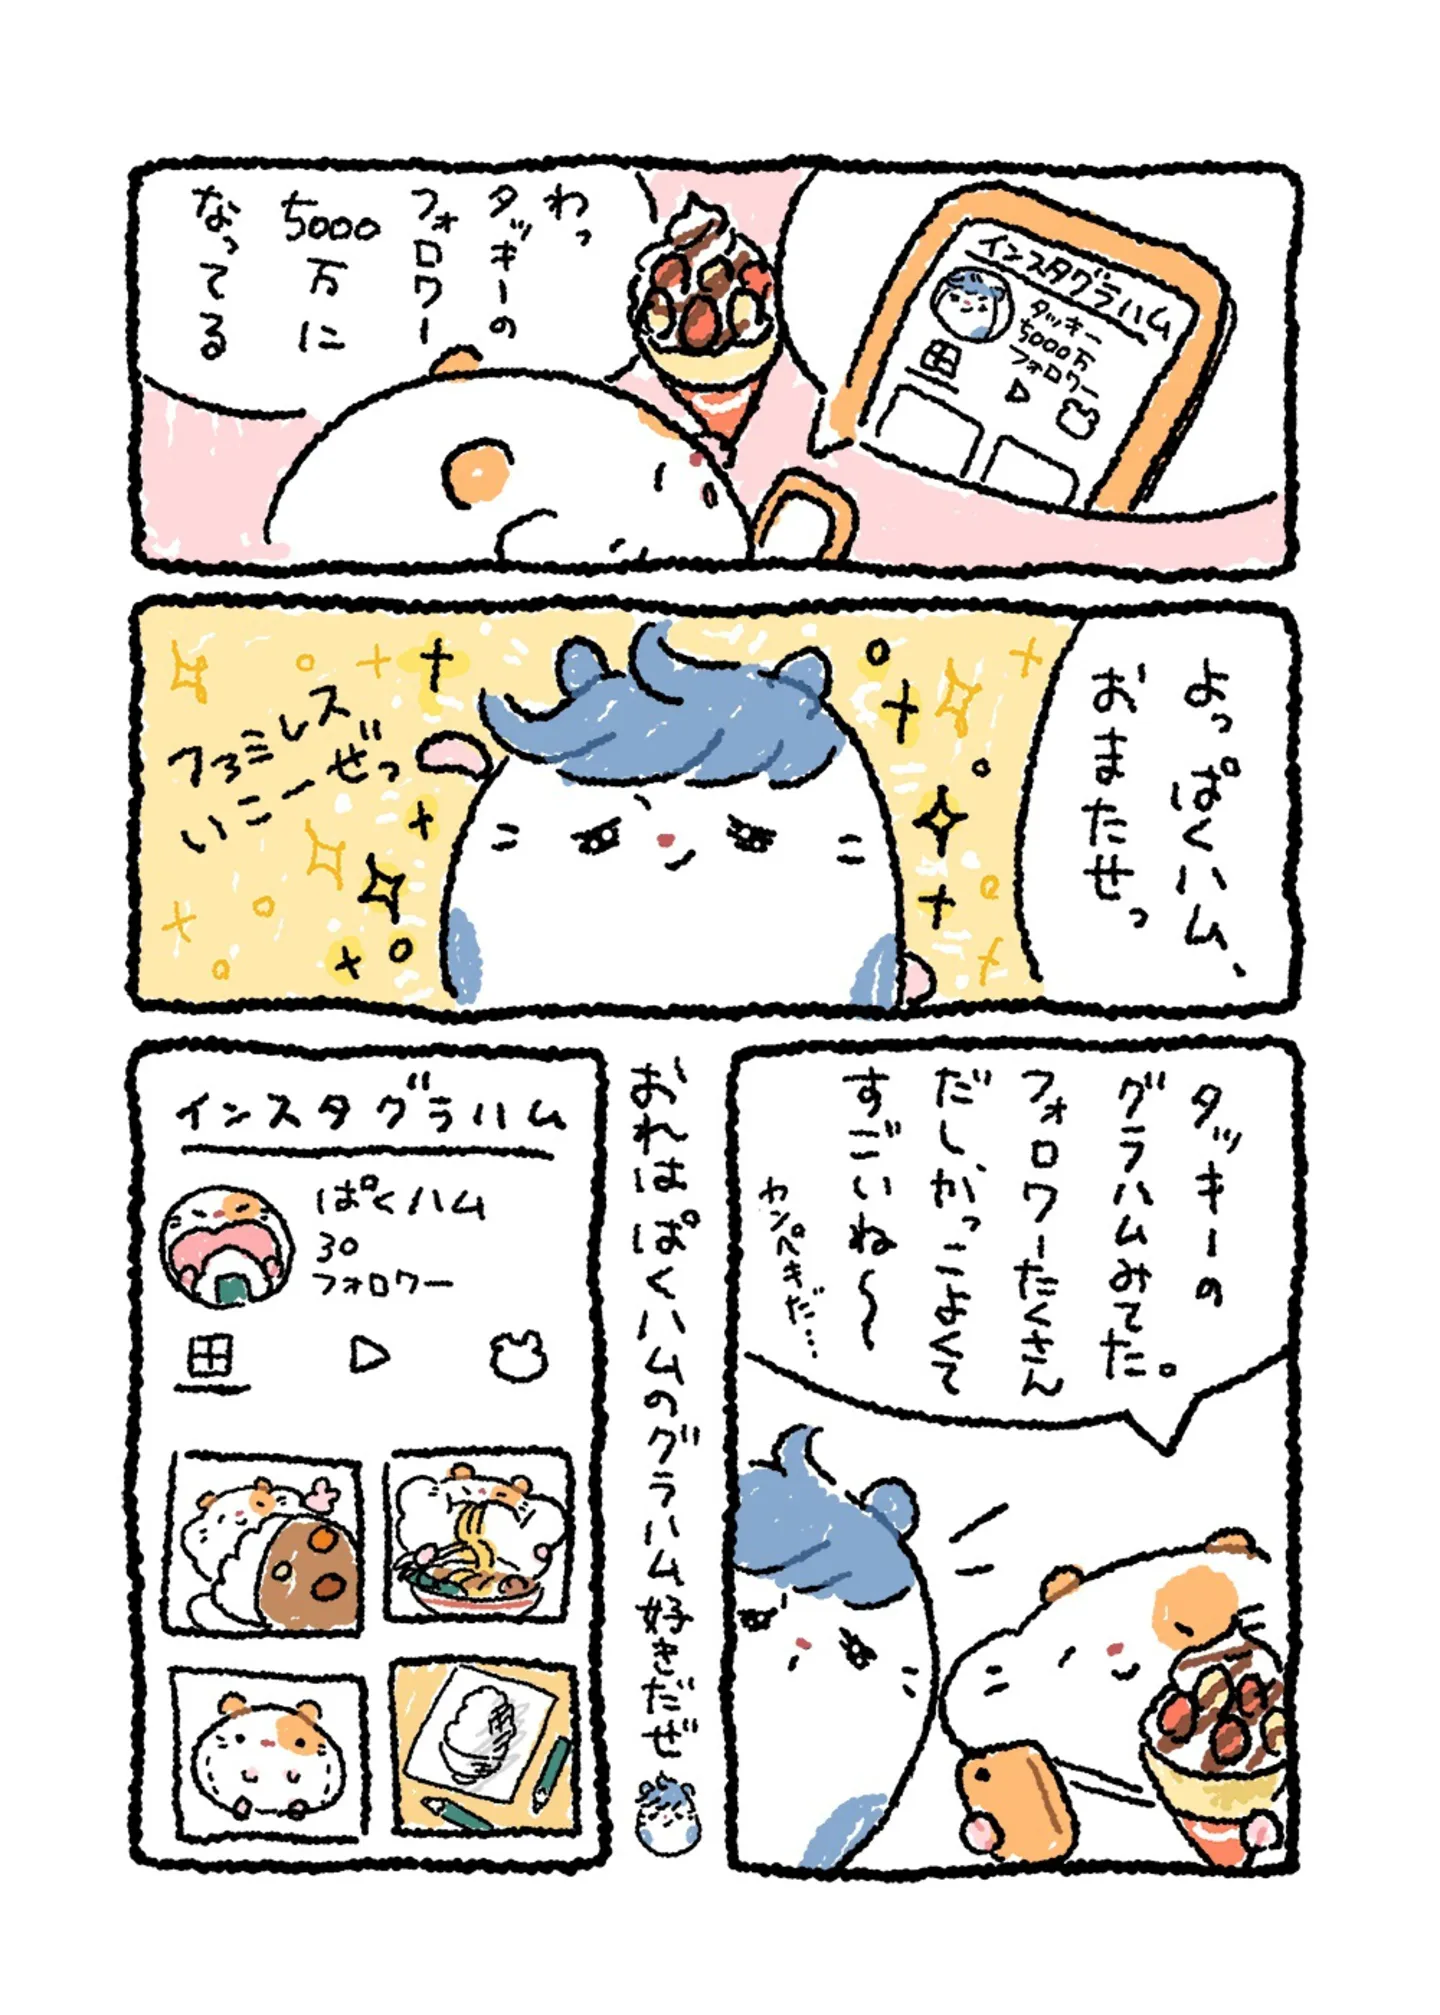 インスタグラハム
タッキー
5000万
フォロワー
わっ
タッキーの
フォロワー
5000
万に
なってる
よっぱくハム、
おまたせっ
ファミレス
いこーぜっ
タッキーの
グラハムみてた。
フォロワーたくさん
だしかっこよくて
すごいね〜
カンペキだ…
おれはぱくハムのグラハム好きだぜ
インスタグラハム
ぱくハム
30
フォロワー